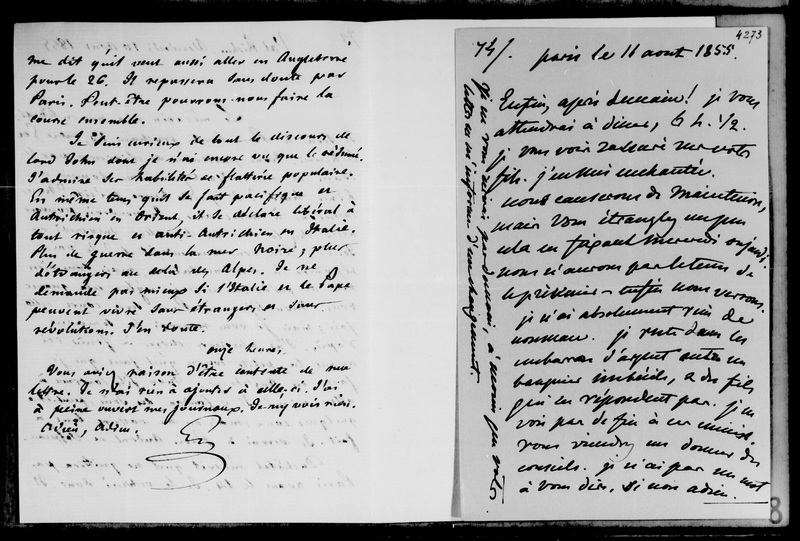 me dit qu'il veut aussi aller en Angleterre
pour le 26. Il repassera sans doute par
Paris. Peut-être pourrons-nous faire la
course ensemble.
Je suis curieux de tout le discours de
lord John dont je n'ai encore vu que le résumé.
J'admire son habileté en flatterie populaire.
En même tems qu'il se fait pacifique et
Autrichien en Orient, il se déclare libéral à
tout risque et anti-Autrichien en Italie.
Plus de guerre dans la mer Noire; plus
d'étrangers au delà des Alpes. Je ne
demande pas mieux si l'Italie et le Pape
peuvent vivre sans étrangers et sans
révolutions. J'en doute.
onze heures.
Vous aviez raison d'être contente de ma
lettre. Je n'ai rien à ajouter à celle-ci. J'ai
à peine ouvert mes journaux. Je n'y vois rien.
Adieu, Adieu.
4273
74/. paris le 11 aout 1855.
Enfin, après demain! je vous
attendrai à diner, 6 h. 1/2.
je vous verrai
fils. j'en suis enchantée.
nous causerons de Maintenon,
mais vous étranglez un peu
cela en fixant mercredi ou jeudi.
nous n'aurons pas le tems de
enfin nous verrons.
je n'ai absolument rien de
nouveau. je reste dans les
embarras d'argent entre un
banquier imbécile, & des fils
qui ne répondent pas. je ne
vois pas de fin à ces
vous viendrez me donner des
conseils. je n'ai pas un mot
à vous dire, si non adieu.
je ne vous écrirai pas demain, à moins que votre
lettre ne m'informe d'un changement.
8